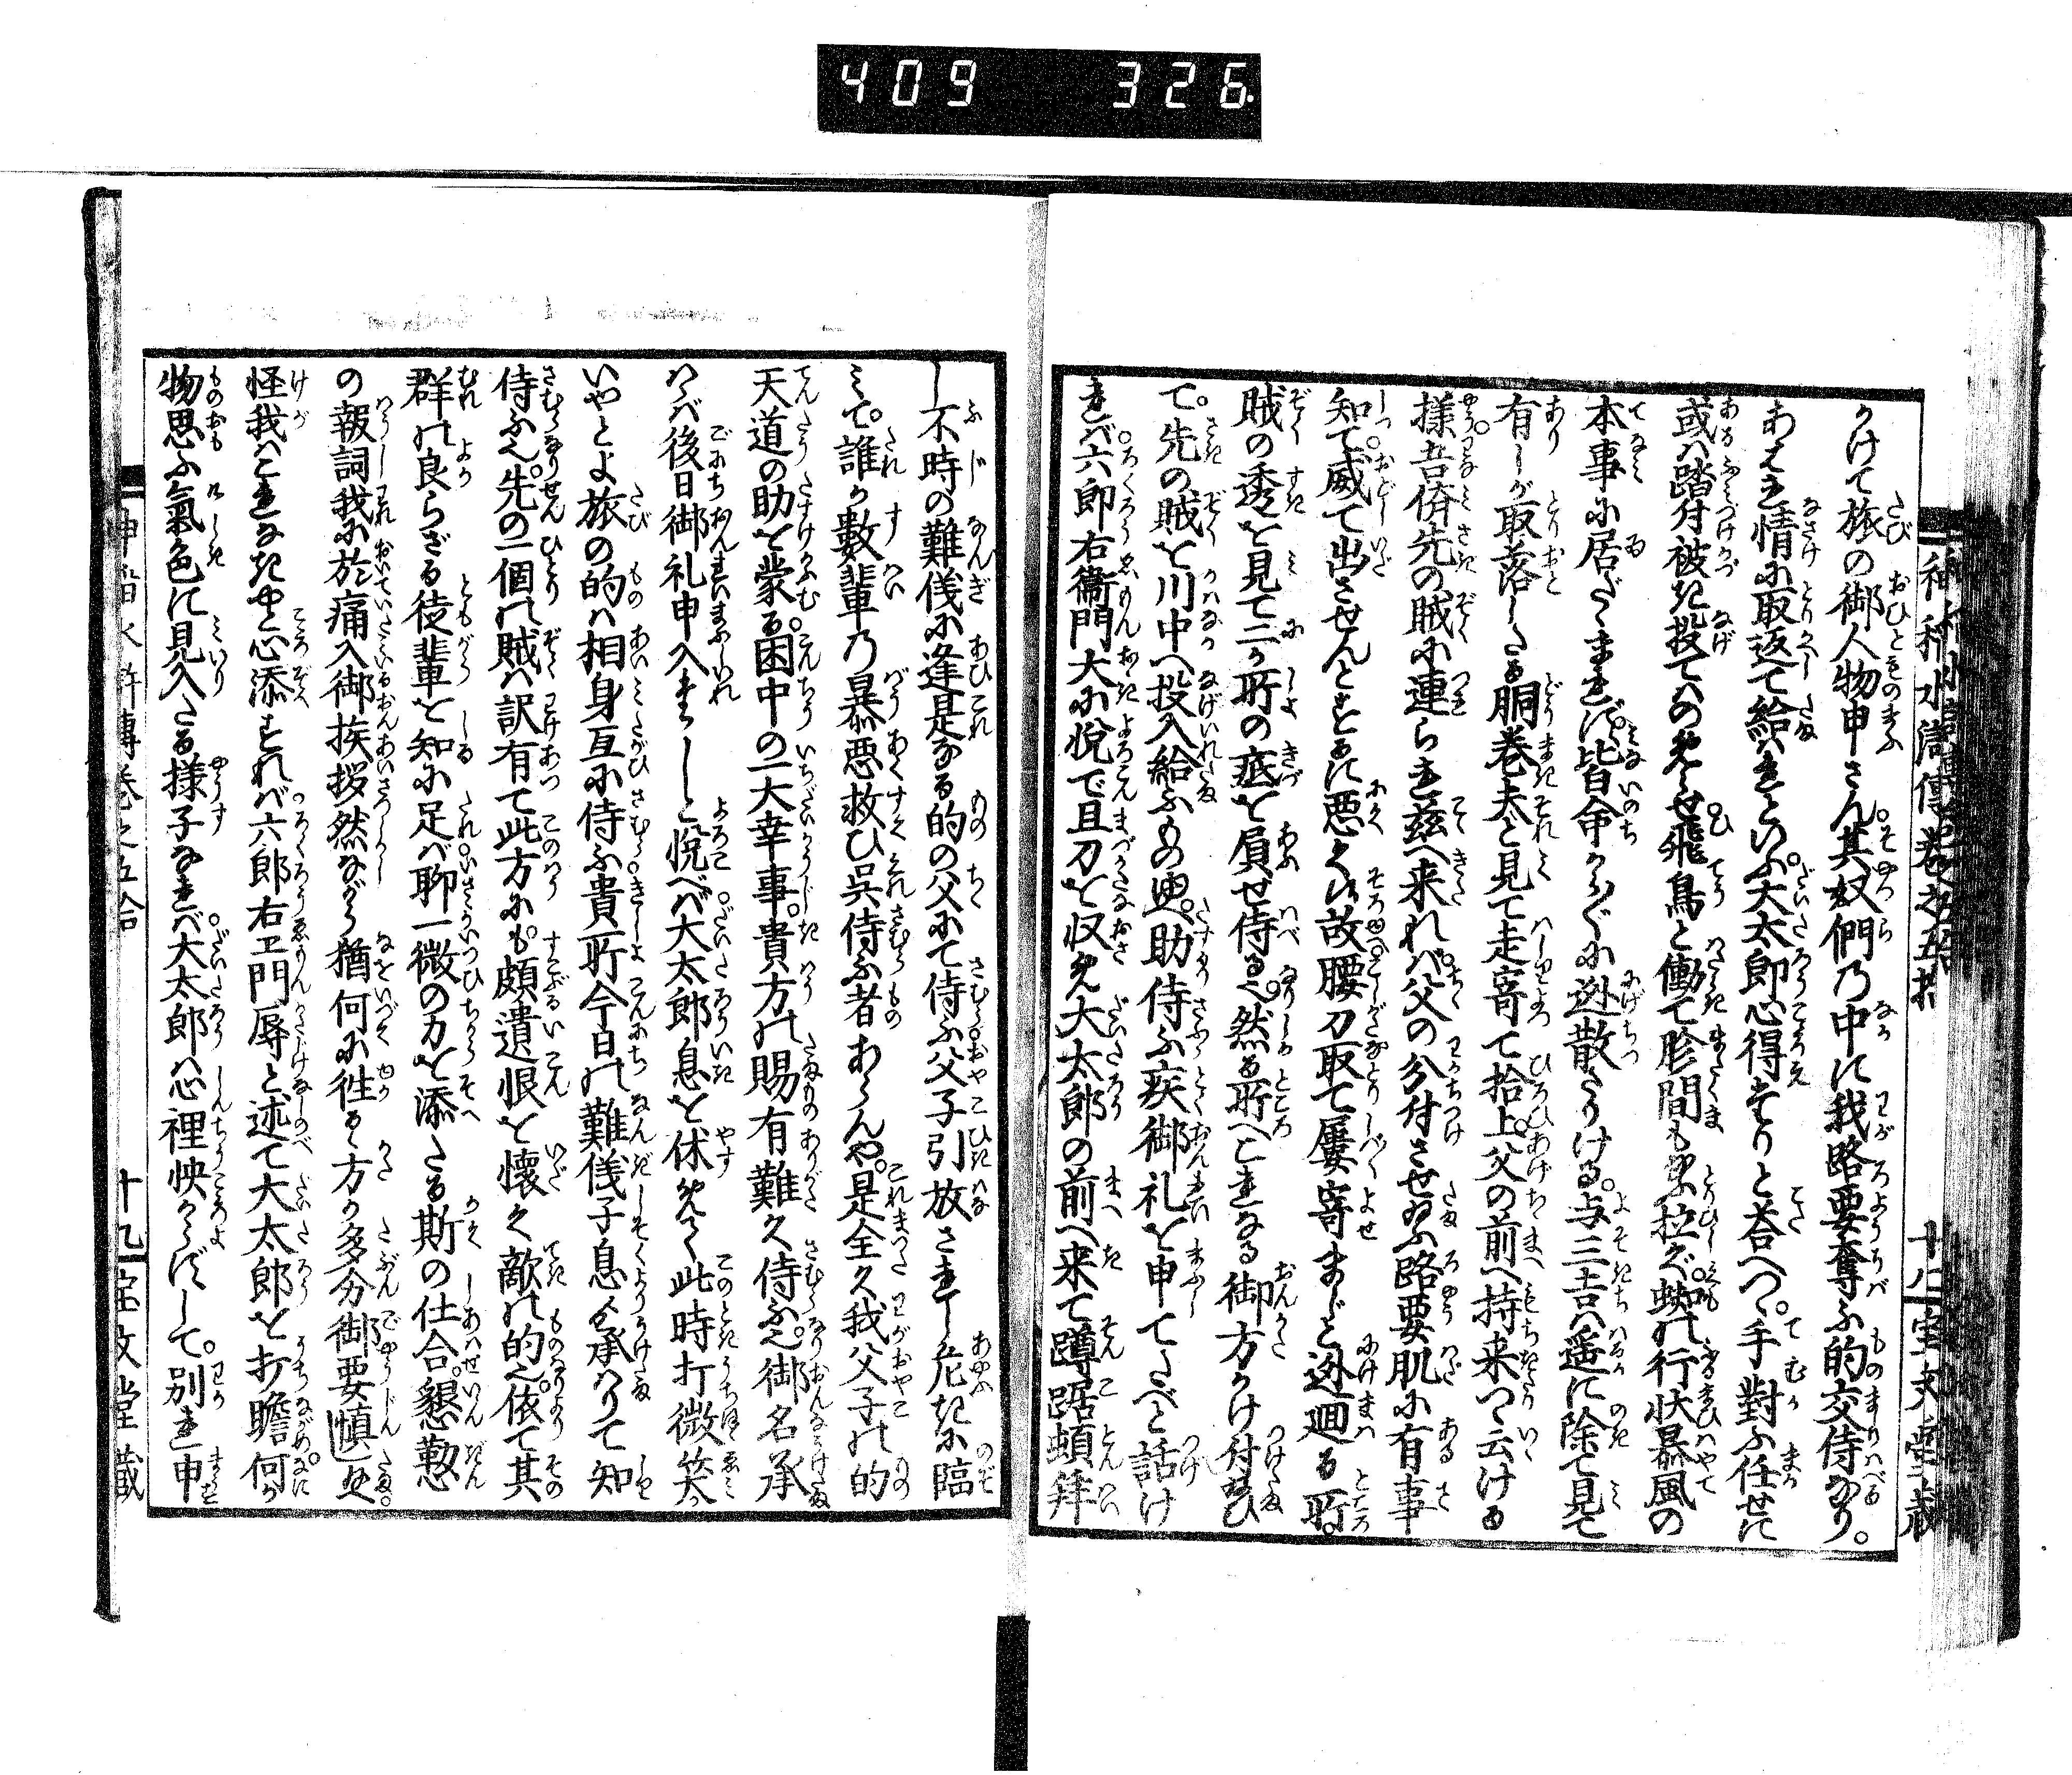 409 326
神稲水滸傳巻之五拾 十八 宝文堂蔵
かけて旅の御人物申さん其奴們乃中に我路要奪ふ的交侍なり。
あはれ情に取返て給はれといふ。大太郎心得たりと荅へつゝ手對ふ任せに
或は踏付被き投てのめらせ飛鳥と働て眇間も
本事に居だゝまれず。皆命からがらに迯散たりける。与三吉は遥に除て見て
有しが取落したる胴巻夫と見て走寄て拾上。父の前へ持来つゝ云ける
様。吾儕先の賊に連られ茲へ来れば。父の分付させ給ふ路要肌に有事
知て。威て出させんとするに悪く候故腰刀取て屡寄まじと迯廻る所。
賊の透を見て二ヶ所の疵を負せ侍るなり。然る所へこれなる御方かけ付給ひ
て。先の賊を川中へ投入給ふもの也。助侍ふ疾御礼を申てたべと話け
れば。六郎右衞門大に悦で且刀を収め大太郎の前へ来て蹲踞頓拜
し不時の難儀に逢是なる的の父にて侍ふ父子引放されし危きに臨
みて。誰か數輩乃暴惡救ひ呉侍ふ者あらんや。是全く我父子の的
天道の助を蒙る。困中の一大幸事。貴方の賜有難く侍ふ也。御名承
はらば後日御礼申入まらしと悦べば大太郎息を休めて此時打微笑
いやとよ旅の的は相身互に侍ふ。貴所今日の難儀子息より承はりて知
侍ふ也。先の一個の賊は訳有て此方にも。頗遺恨を懐く敵の的也。依て其
群の良らざる徒輩を知に足ば聊一微の力を添たる斯の仕合。懇懃
の報詞我に於痛入御挨拶然ながら猶何に徃るゝ方か多分御要慎し給へ。
怪我はこれなきやと心添すれば。六郎右エ門辱と述て大太郎を打瞻。何か
物思ふ氣色に見入たる様子なれば。大太郎は心裡怏からずして。別れ申
神稲水滸傳巻之五拾 十九 宝文堂蔵